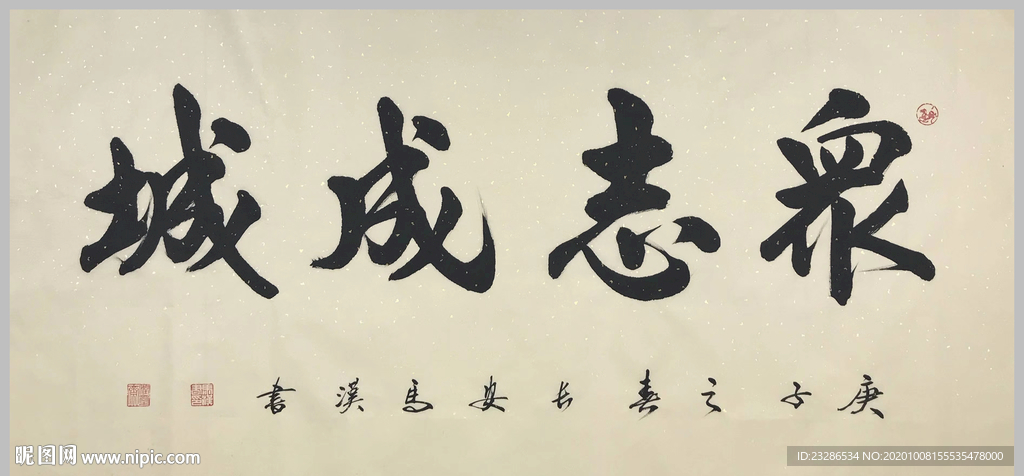 眾志成城
庚子之春长安馬漢書
昵图网 www.nipic.com
ID:23286534 NO:20201008155535478000